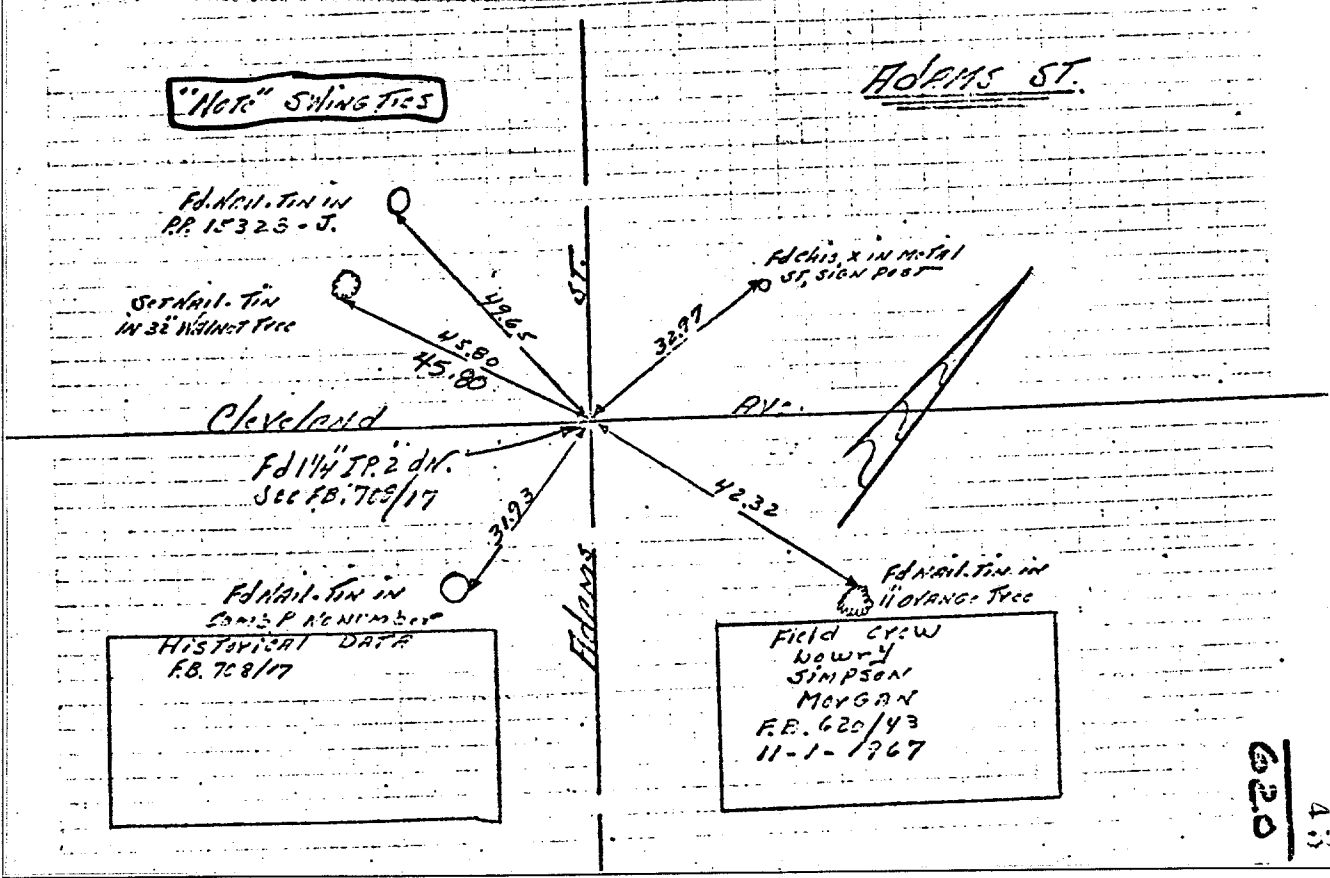 "Note" SWING TIES
AdAMS ST.
Fd. Nail. Tin in
P.P. 15323 - J.
Set Nail. Tin
in 32" Walnut Tree
49.65
45.80
45.80
ST.
Fd chis. X in Metal
ST. SIGN POST
32.97
Cleveland
AVE.
Fd 1 1/4" I.P. 2" dn.
See F.B. 708/17
31.93
42.32
Fd Nail. Tin in
Comb P No number
Adams
Fd Nail. Tin in
11" ORANGE Tree
HISTORICAL DATA
F.B. 708/17
Field Crew
Lowry
SIMPSON
MORGAN
F.B. 620/43
11-1-1967
620
43